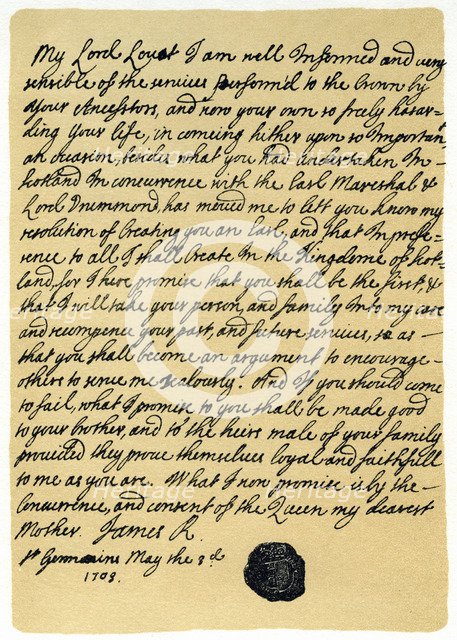 My Lord Lovat I am well Informed and very
sensible of the services performd to the Crown by
your Ancestors, and now your own so freely hasar-
ding your life, in comeing hither upon so Important
an ocasion, besides what you had undertaken In-
scotland In concurrence with the Earl Mareshal &
Lord Drummond has moved me to lett you know my
resolution of Creating you an Earl, and that In prefe-
rence to all I shall Create In the Kingdome of Scot-
land, for I here promise that you shall be the first, &
that I will take your person, and family In my care
and recompence your past, and future services, so as-
that you shall become an argument to encourage-
others to serve me zealously. And If you should come
to fail, what I promise to you shall be made good
to your brother, and to the heirs male of your family
provided they prove themselves loyal and faithfull
to me as you are. What I now promise is by the-
Concurrence, and consent of the Queen my dearest
Mother. James R.
St Germains May the 3d
1703.
Heritage Images
Heritage Images
Heritage Images
Heritage Images